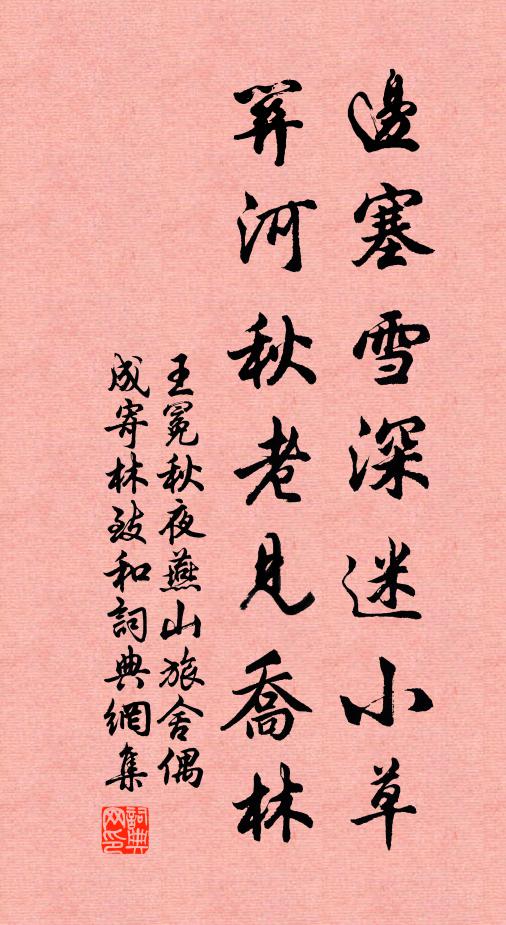 邊塞雪深迷小草
關河秋老見喬林
王冕秋夜燕山旅舍偶
成寄林致和詞典網集
詞典网印